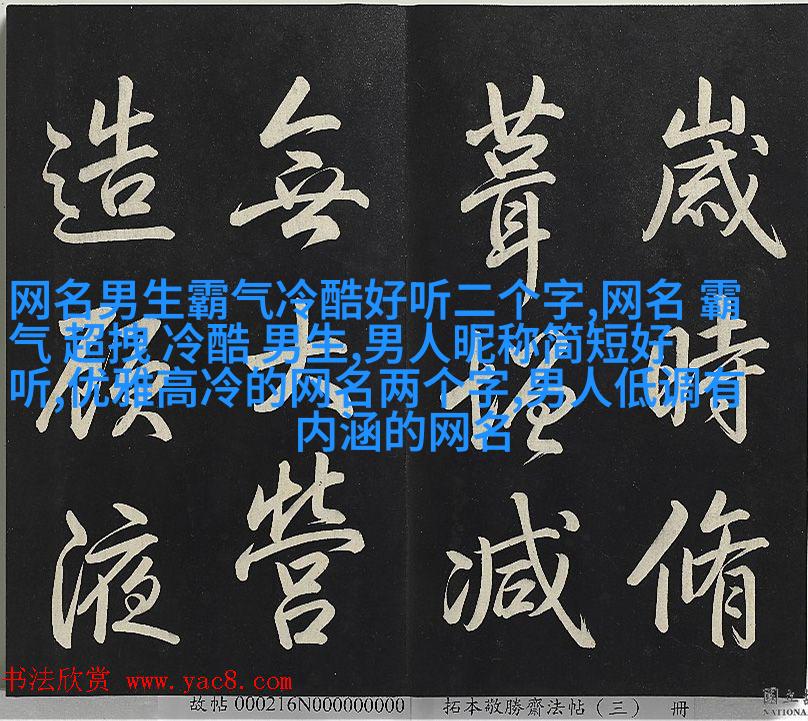 歲時脩
葺增減
無大營
造顧液
网名男生霸气冷酷好听二个字,网名 霸
气 超拽 冷酷 男生,男人昵称简短好
听,优雅高冷的网名两个字,男人低调有
内涵的网名
书法欣赏 www.yac8.com
故帖 000216N000000000 拓本敬勝齋法帖（三） 册
國立
NATIONA